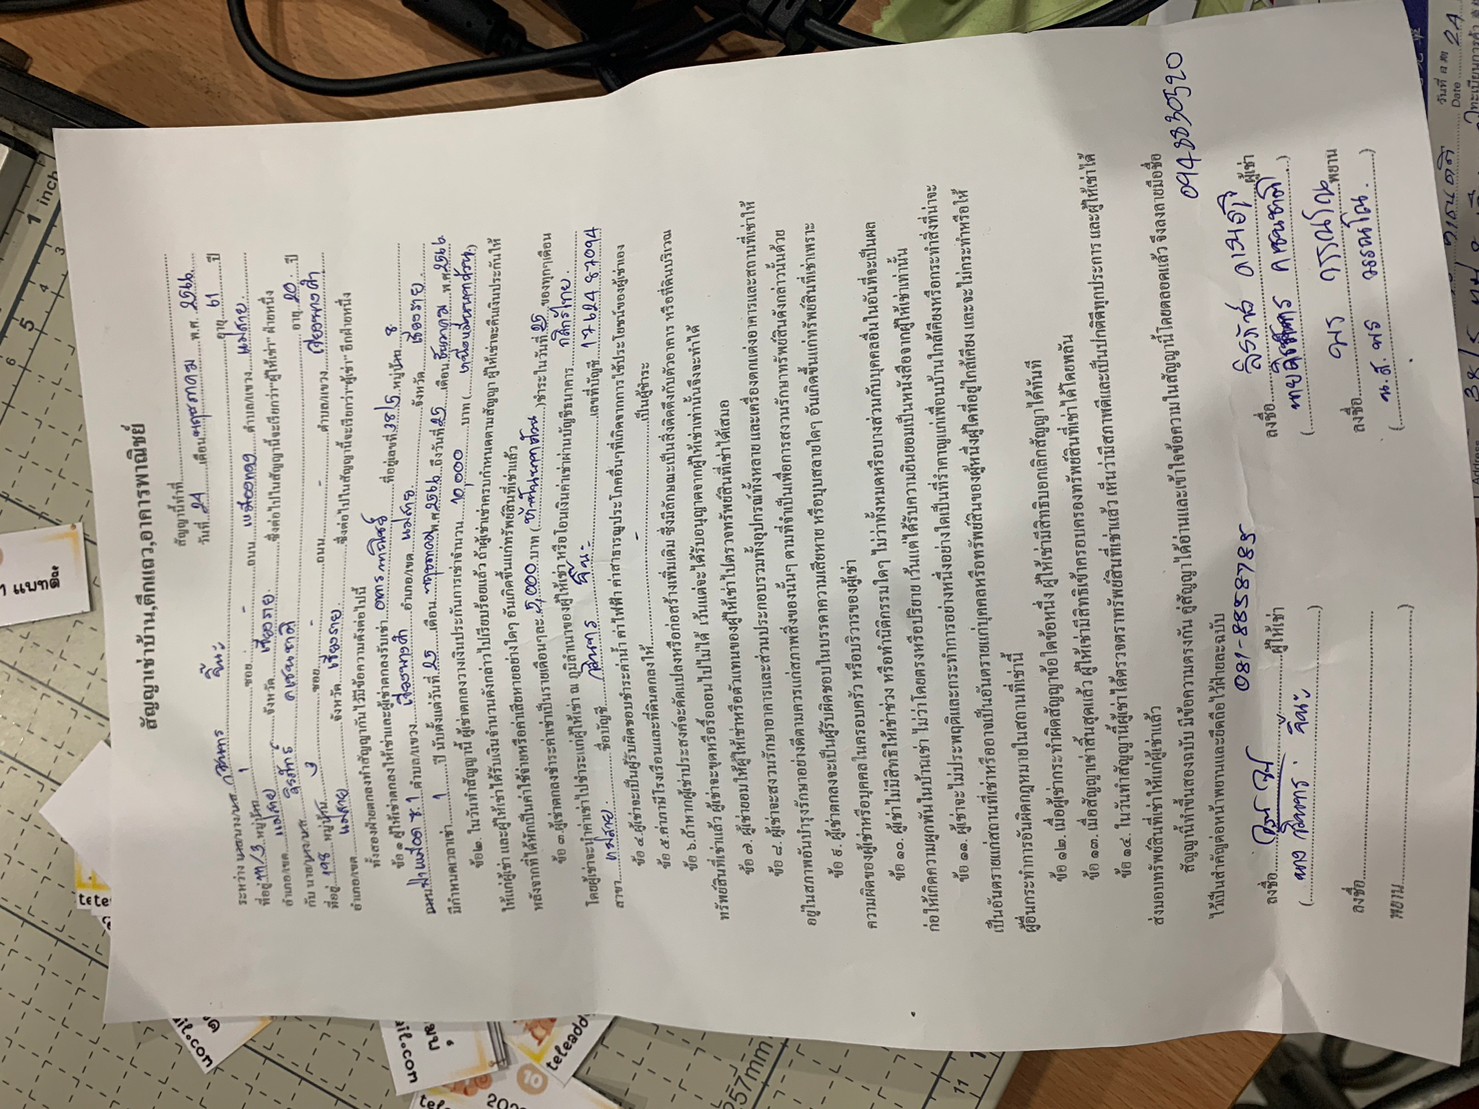 สัญญาเช่าบ้าน,ตึกแถว,อาคารพาณิชย์
สัญญานี้ทำที่
วันที่ 24 เดือน พฤษภาคม พ.ศ. 2566
ระหว่าง อายุ 61 ปี
ที่อยู่ 111/3 หมู่บ้าน 1 ซอย - ถนน ตำบล/แขวง แม่สาย
อำเภอ/เขต แม่สาย จังหวัด เชียงราย ซึ่งต่อไปในสัญญานี้จะเรียกว่า"ผู้ให้เช่า" ฝ่ายหนึ่ง
กับ อายุ 20 ปี
ที่อยู่ 198 หมู่บ้าน ซอย - ถนน - ตำบล/แขวง เวียงพางคำ
อำเภอ/เขต แม่สาย จังหวัด เชียงราย ซึ่งต่อไปในสัญญานี้จะเรียกว่า"ผู้เช่า" อีกฝ่ายหนึ่ง
ทั้งสองฝ่ายตกลงทำสัญญากันไว้มีข้อความดังต่อไปนี้
ข้อ ๑ ผู้ให้เช่าตกลงให้เช่าและผู้เช่าตกลงรับเช่า อาคารพาณิชย์ ที่อยู่เลขที่ 38/5 หมู่บ้าน 8
ตำบล/แขวง เวียงพางคำ อำเภอ/เขต แม่สาย จังหวัด เชียงราย
มีกำหนดเวลาเช่า 1 ปี นับตั้งแต่วันที่ 25 เดือน พฤษภาคม พ.ศ 2566 ถึงวันที่ 25 เดือน พ.ศ 2566
ข้อ๒. ในวันทำสัญญานี้ ผู้เช่าตกลงวางเงินประกันการเช่าจำนวน 10,000 บาท (หนึ่งหมื่นบาทถ้วน)
ให้แก่ผู้เช่า และผู้ให้เช่าได้รับเงินจำนวนดังกล่าวไปเรียบร้อยแล้ว ถ้าผู้เช่าเช่าครบกำหนดตามสัญญา ผู้ให้เช่าจะคืนเงินประกันให้
หลังจากที่ได้หักเป็นค่าใช้จ่ายหรือค่าเสียหายอย่างใดๆ อันเกิดขึ้นแก่ทรัพย์สินที่เช่าแล้ว
ข้อ ๓.ผู้เช่าตกลงชำระค่าเช่าเป็นรายเดือนๆละ 5,000 บาท (ห้าพันบาทถ้วน) ชำระในวันที่ 25 ของทุกๆเดือน
โดยผู้เช่าจะนำค่าเช่าไปชำระแก่ผู้ให้เช่า ณ ภูมิลำเนาของผู้ให้เช่า หรือโอนเงินค่าเช่าผ่านบัญชีธนาคาร กสิกรไทย
สาขา แม่สาย ชื่อบัญชี เลขที่บัญชี 1762487094
ข้อ ๔.ผู้เช่าจะเป็นผู้รับผิดชอบชำระค่าน้ำ ค่าไฟฟ้า ค่าสาธารณูประโภคอื่นๆที่เกิดจากการใช้ประโยชน์ของผู้เช่าเอง
ข้อ ๕.ค่าภาษีโรงเรือนและที่ดินตกลงให้ - เป็นผู้ชำระ
ข้อ ๖.ถ้าหากผู้เช่าประสงค์จะดัดแปลงหรือก่อสร้างเพิ่มเติม ซึ่งมีลักษณะเป็นสิ่งติดตึงกับตัวอาคาร หรือที่ดินบริเวณ
ทรัพย์สินที่เช่าแล้ว ผู้เช่าจะขุดหรือรื้อถอนไปไม่ได้ เว้นแต่จะได้รับอนุญาตจากผู้ให้เช่าเท่านั้นจึงจะทำได้
ข้อ ๗. ผู้เช่ายอมให้ผู้ให้เช่าหรือตัวแทนของผู้ให้เช่าไปตรวจทรัพย์สินที่เช่าได้เสมอ
ข้อ ๘. ผู้เช่าจะสงวนรักษาอาคารและส่วนประกอบรวมทั้งอุปกรณ์ทั้งหลาย และเครื่องตกแต่งอาคารและสถานที่เช่าให้
อยู่ในสภาพอันบำรุงรักษาอย่างดีตามควรแก่สภาพสิ่งของนั้นๆ ตามที่จำเป็นเพื่อการสงวนรักษาทรัพย์สินดังกล่าวนั้นด้วย
ข้อ ๙. ผู้เช่าตกลงจะเป็นผู้รับผิดชอบในบรรดาความเสียหาย หรือบุบสลายใดๆ อันเกิดขึ้นแก่ทรัพย์สินที่เช่าเพราะ
ความผิดของผู้เช่าหรือบุคคลในครอบครัว หรือบริวารของผู้เช่า
ข้อ ๑๐. ผู้เช่าไม่มีสิทธิให้เช่าช่วง หรือทำนิติกรรมใดๆ ไม่ว่าทั้งหมดหรือบางส่วนกับบุคคลอื่นในอันที่จะเป็นผล
ก่อให้เกิดความผูกพันในบ้านเช่า ไม่ว่าโดยตรงหรือปริยาย เว้นแต่ได้รับความยินยอมเป็นหนังสือจากผู้ให้เช่าเท่านั้น
ข้อ ๑๑. ผู้เช่าจะไม่ประพฤติและกระทำการอย่างหนึ่งอย่างใดเป็นที่รำคาญแก่เพื่อนบ้านใกล้เคียงหรือกระทำสิ่งที่น่าจะ
เป็นอันตรายแก่สถานที่เช่าหรืออาจเป็นอันตรายแก่บุคคลหรือทรัพย์สินของผู้หนึ่งผู้ใดที่อยู่ใกล้เคียง และจะไม่กระทำหรือให้
ผู้อื่นกระทำการอันผิดกฎหมายในสถานที่เช่านี้
ข้อ ๑๒. เมื่อผู้เช่ากระทำผิดสัญญาข้อใดข้อหนึ่ง ผู้ให้เช่ามีสิทธิบอกเลิกสัญญาได้ทันที
ข้อ ๑๓. เมื่อสัญญาเช่าสิ้นสุดแล้ว ผู้ให้เช่ามีสิทธิเข้าครอบครองทรัพย์สินที่เช่าได้โดยพลัน
ข้อ ๑๔. ในวันทำสัญญานี้ผู้เช่าได้ตรวจตราทรัพย์สินที่เช่าแล้ว เห็นว่ามีสภาพดีและเป็นปกติดีทุกประการ และผู้ให้เช่าได้
ส่งมอบทรัพย์สินที่เช่าให้แก่ผู้เช่าแล้ว
สัญญานี้ทำขึ้นสองฉบับ มีข้อความตรงกัน คู่สัญญาได้อ่านและเข้าใจข้อความในสัญญานี้โดยตลอดแล้ว จึงลงลายมือชื่อ
ไว้เป็นสำคัญต่อหน้าพยานและยึดถือไว้ฝ่ายละฉบับ
0948830320
081-8858785
ลงชื่อ ผู้ให้เช่า
ลงชื่อ ผู้เช่า
ลงชื่อ
พยาน
ลงชื่อ พร พยาน
(น.ส. พร )
1 inch
557mm
วันที่
Date 24